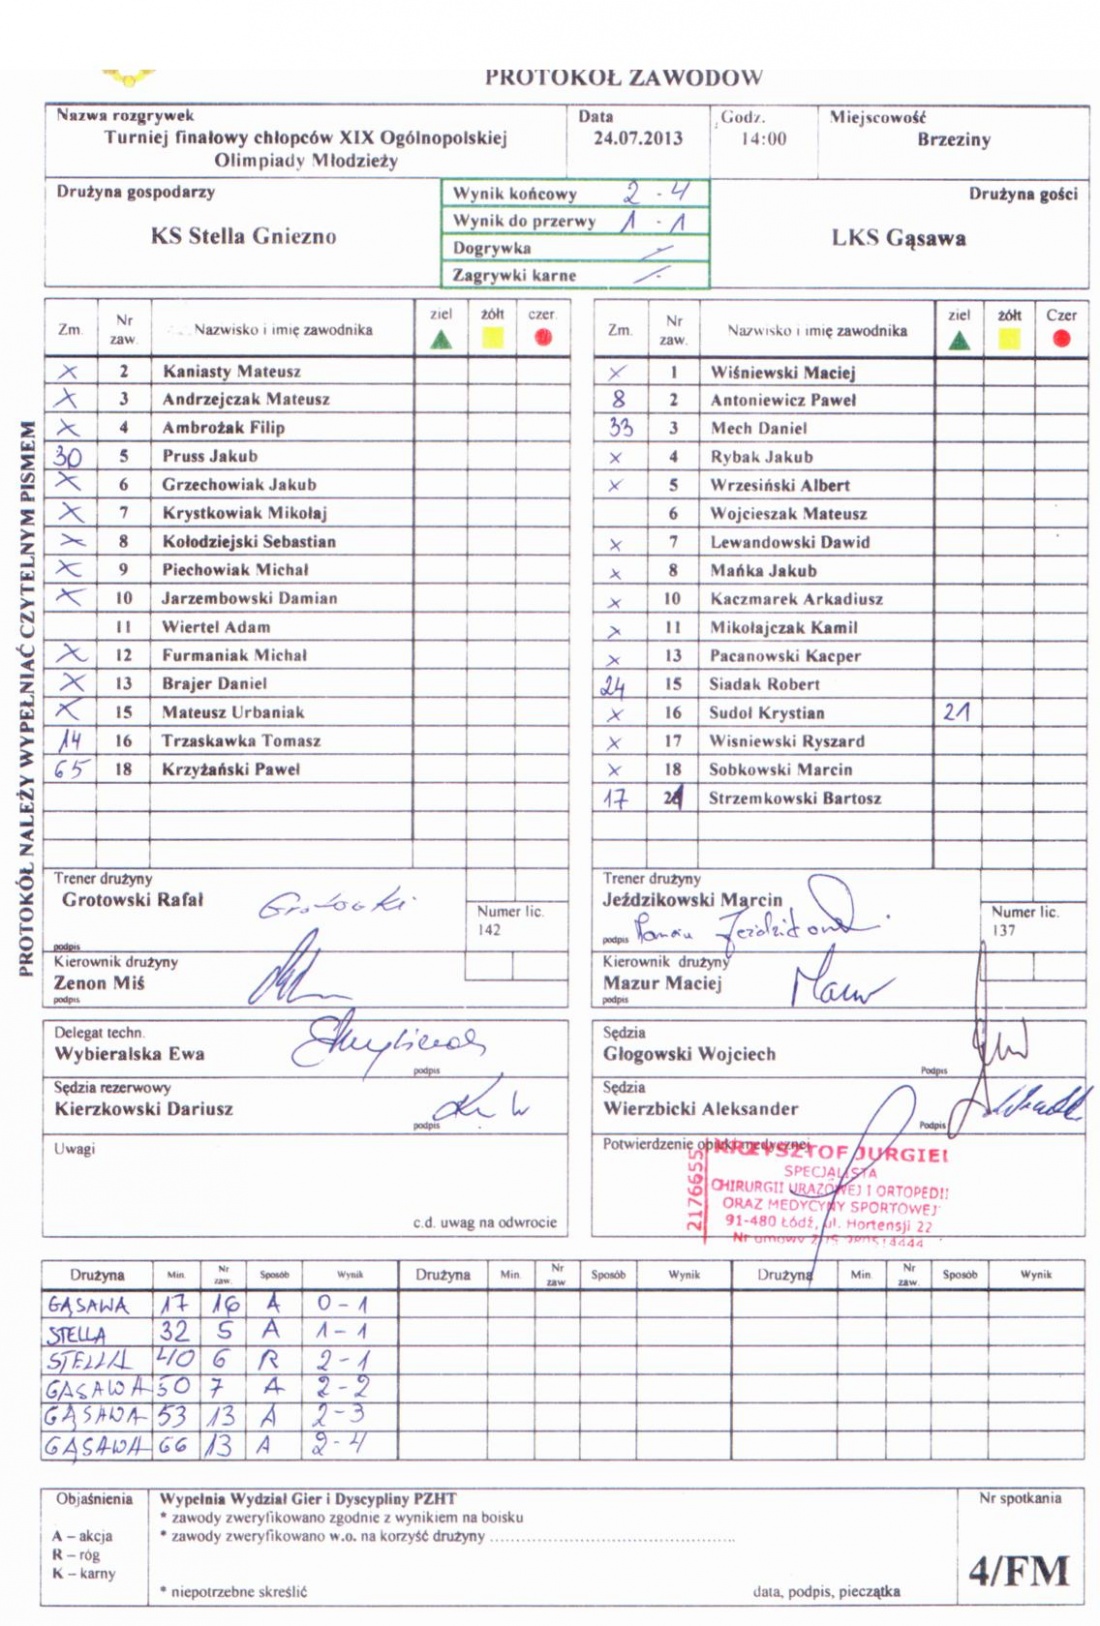 PROTOKÓŁ ZAWODÓW
Nazwa rozgrywek
Turniej finałowy chłopców XIX Ogólnopolskiej
Olimpiady Młodzieży
Data
24.07.2013
Godz.
14:00
Miejscowość
Brzeziny
Drużyna gospodarzy
KS Stella Gniezno
Wynik końcowy 2 - 4
Wynik do przerwy 1 - 1
Dogrywka
Zagrywki karne
Drużyna gości
LKS Gąsawa
PROTOKÓŁ NALEŻY WYPEŁNIAĆ CZYTELNYM PISMEM
Zm. Nr zaw. Nazwisko i imię zawodnika ziel żółt czer.
X 2 Kaniasty Mateusz
X 3 Andrzejczak Mateusz
X 4 Ambrożak Filip
30 5 Pruss Jakub
X 6 Grzechowiak Jakub
X 7 Krystkowiak Mikołaj
X 8 Kołodziejski Sebastian
X 9 Piechowiak Michał
X 10 Jarzembowski Damian
11 Wiertel Adam
X 12 Furmaniak Michał
X 13 Brajer Daniel
X 15 Mateusz Urbaniak
14 16 Trzaskawka Tomasz
65 18 Krzyżański Paweł
Zm. Nr zaw. Nazwisko i imię zawodnika ziel żółt Czer
X 1 Wiśniewski Maciej
8 2 Antoniewicz Paweł
33 3 Mech Daniel
X 4 Rybak Jakub
X 5 Wrzesiński Albert
6 Wojcieszak Mateusz
X 7 Lewandowski Dawid
X 8 Mańka Jakub
X 10 Kaczmarek Arkadiusz
X 11 Mikołajczak Kamil
X 13 Pacanowski Kacper
24 15 Siadak Robert
X 16 Sudoł Krystian 21
X 17 Wisniewski Ryszard
X 18 Sobkowski Marcin
17 21 Strzemkowski Bartosz
Trener drużyny
Grotowski Rafał
podpis
Numer lic.
142
Kierownik drużyny
Zenon Miś
podpis
Trener drużyny
Jeździkowski Marcin
podpis
Numer lic.
137
Kierownik drużyny
Mazur Maciej
podpis
Delegat techn.
Wybieralska Ewa
podpis
Sędzia rezerwowy
Kierzkowski Dariusz
podpis
Uwagi
c.d. uwag na odwrocie
Sędzia
Głogowski Wojciech
Podpis
Sędzia
Wierzbicki Aleksander
Podpis
Potwierdzenie opieki medycznej
2176655
KRZYSZTOF JURGIEL
SPECJALISTA
CHIRURGII URAZOWEJ I ORTOPEDII
ORAZ MEDYCYNY SPORTOWEJ
91-480 Łódź, ul. Hortensji 22
Nr umowy
Drużyna Min. Nr zaw. Sposób Wynik Drużyna Min. Nr zaw Sposób Wynik Drużyna Min Nr zaw. Sposób Wynik
GĄSAWA 17 16 A 0 - 1
STELLA 32 5 A 1 - 1
STELLA 40 6 R 2 - 1
GĄSAWA 50 7 A 2 - 2
GĄSAWA 53 13 A 2 - 3
GĄSAWA 66 13 A 2 - 4
Objaśnienia
A – akcja
R – róg
K – karny
Wypełnia Wydział Gier i Dyscypliny PZHT
* zawody zweryfikowano zgodnie z wynikiem na boisku
* zawody zweryfikowano w.o. na korzyść drużyny ..........
* niepotrzebne skreślić
data, podpis, pieczątka
Nr spotkania
4/FM